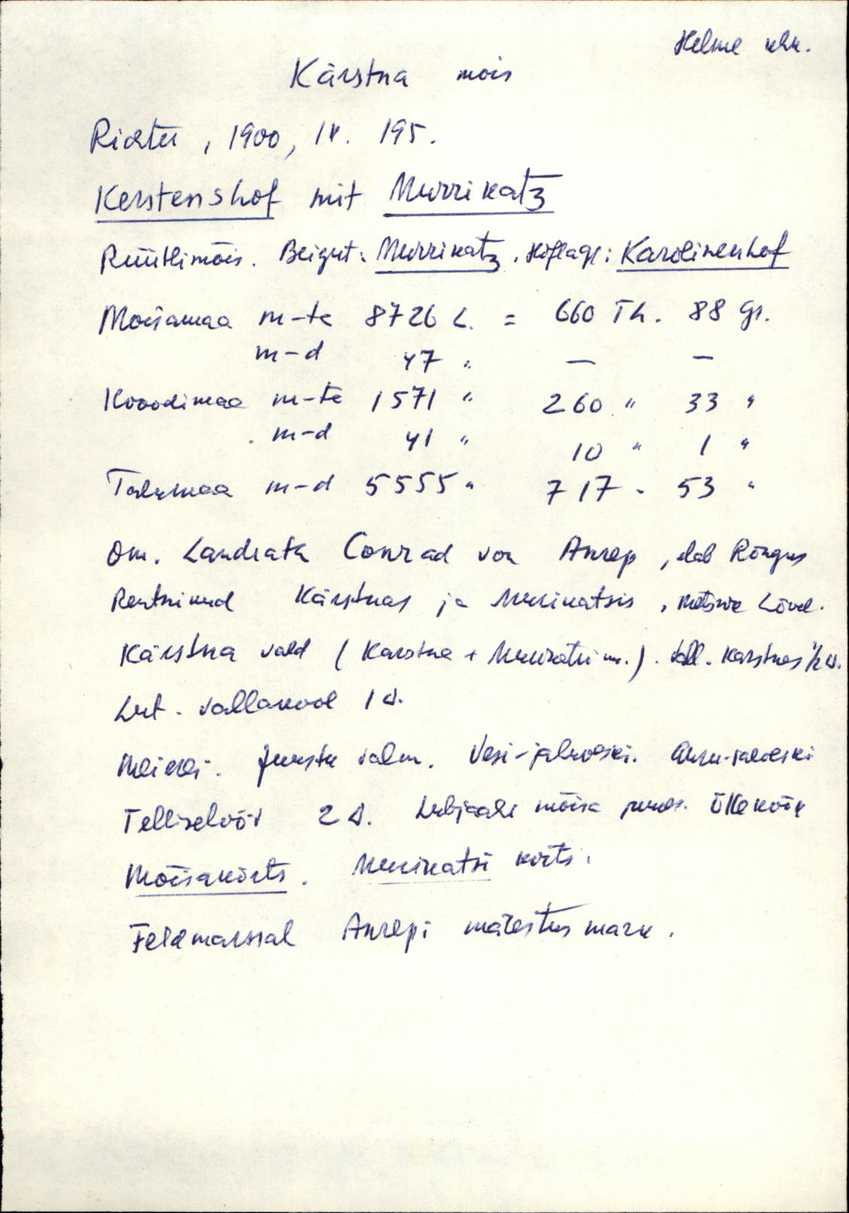 Helme khk.
Kärstna mõis
Richter, 1900, IV. 195.
Kerstenshof mit Murrikatz
Rüütlimõis. Beigut: Murrikatz. Hoflage: Karolinenhof
Mõisamaa m-ta 8726 L. = 660 Th. 88 Gr.
m-d 47 " — —
Kvoodimaa m-ta 1571 " 260 " 33 "
m-d 41 " 10 " 1 "
Talumaa m-d 5555 " 717 " 53 "
Om. Landrath Conrad von Anrep, elab Rõngus
Rentnikud Kärstnas ja Murikatsis, metsnik
Kärstna vald (Kärstna + m.). Kärstnas 1/2 v.
Lut. vallakool 1 v.
Meierei. Juustu valm. Vesi-jahveski. Auru-saeveski
Telliselööv 2 v. Lubjaahi mõisa juures. Õlleköök
Mõisakõrts. Murikatsi kõrts.
Feldmarssal Anrepi mälestusmärk.